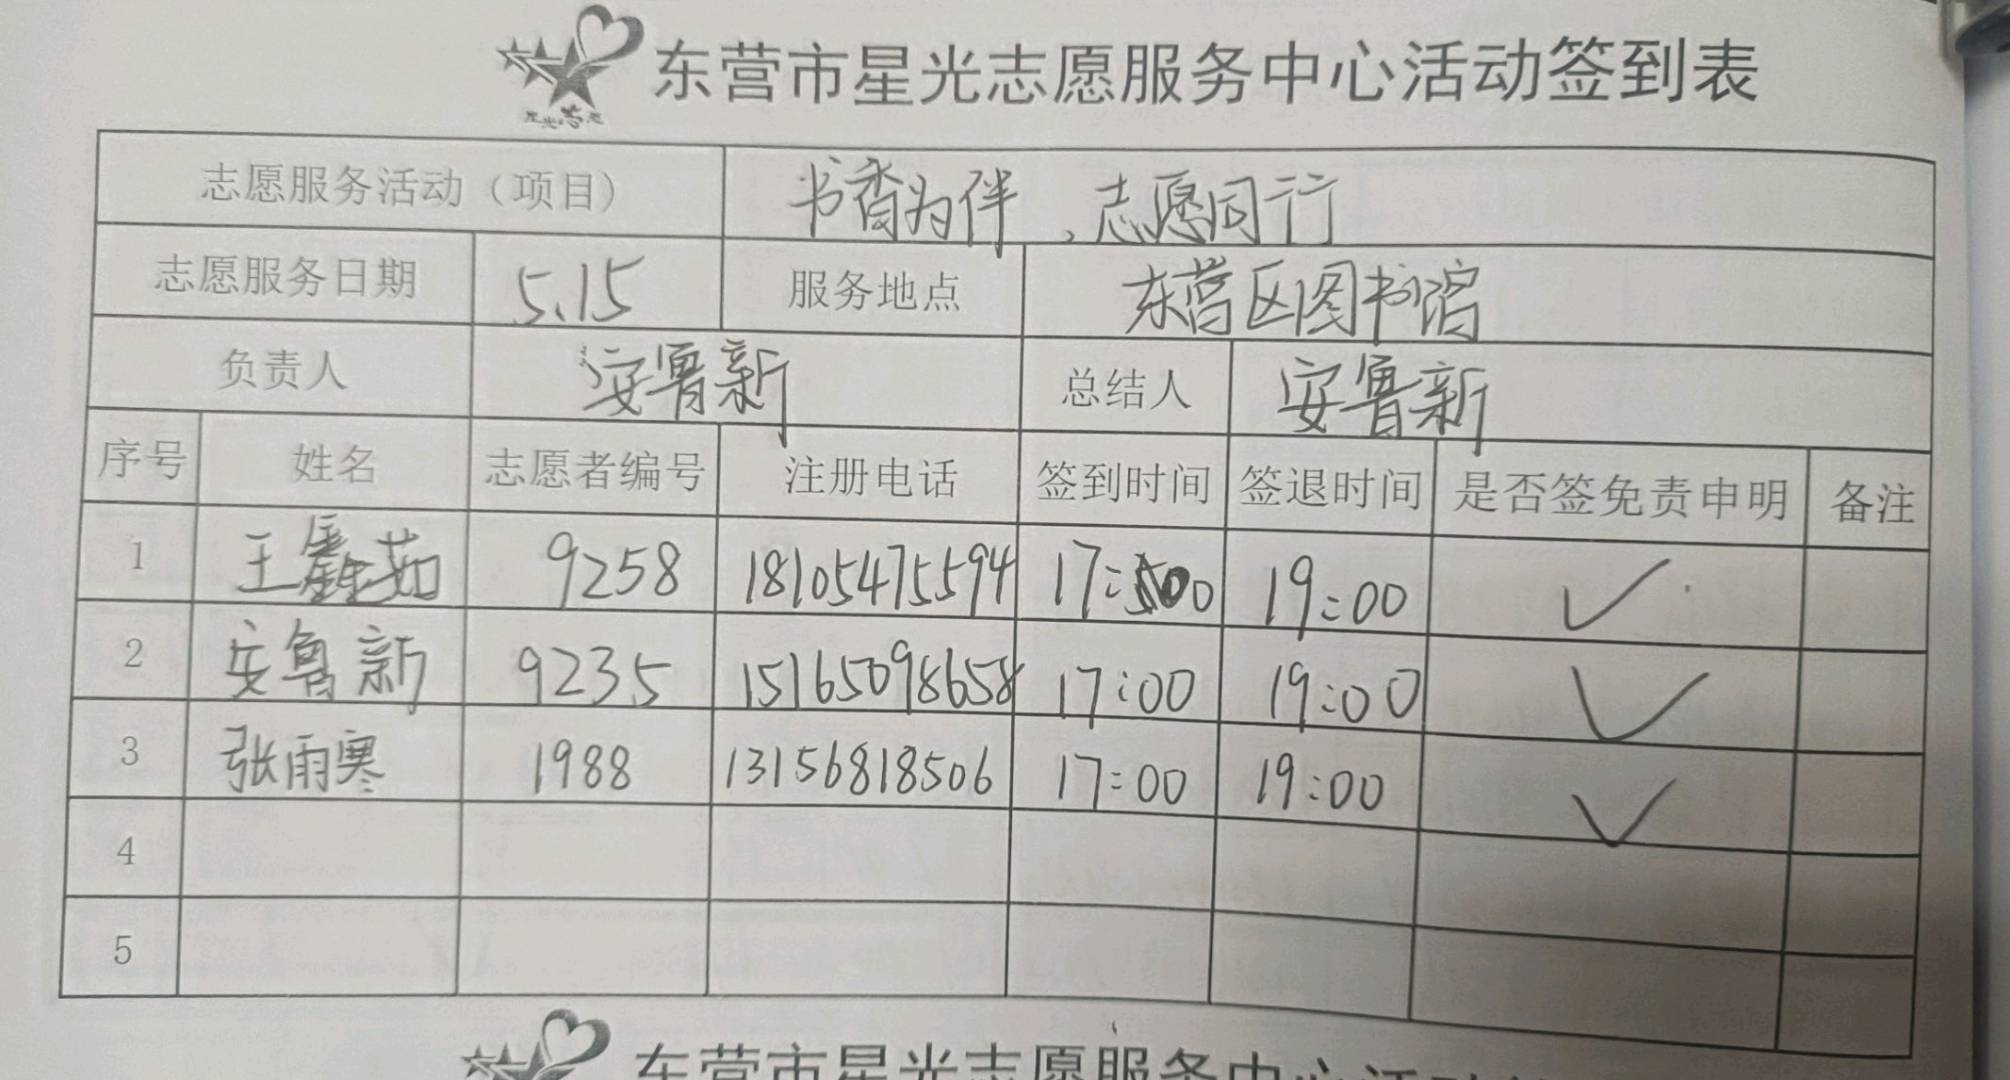 东营市星光志愿服务中心活动签到表
星光志愿
志愿服务活动（项目） 书香为伴、志愿同行
志愿服务日期 5.15 服务地点 东营区图书馆
负责人 安鲁新 总结人 安鲁新
序号 姓名 志愿者编号 注册电话 签到时间 签退时间 是否签免责申明 备注
1 王鑫茹 9258 18105475594 17:00 19:00 ✓
2 安鲁新 9235 15165098658 17:00 19:00 ✓
3 张雨寒 1988 13156818506 17:00 19:00 ✓
4
5
东营市星光志愿服务中心活动